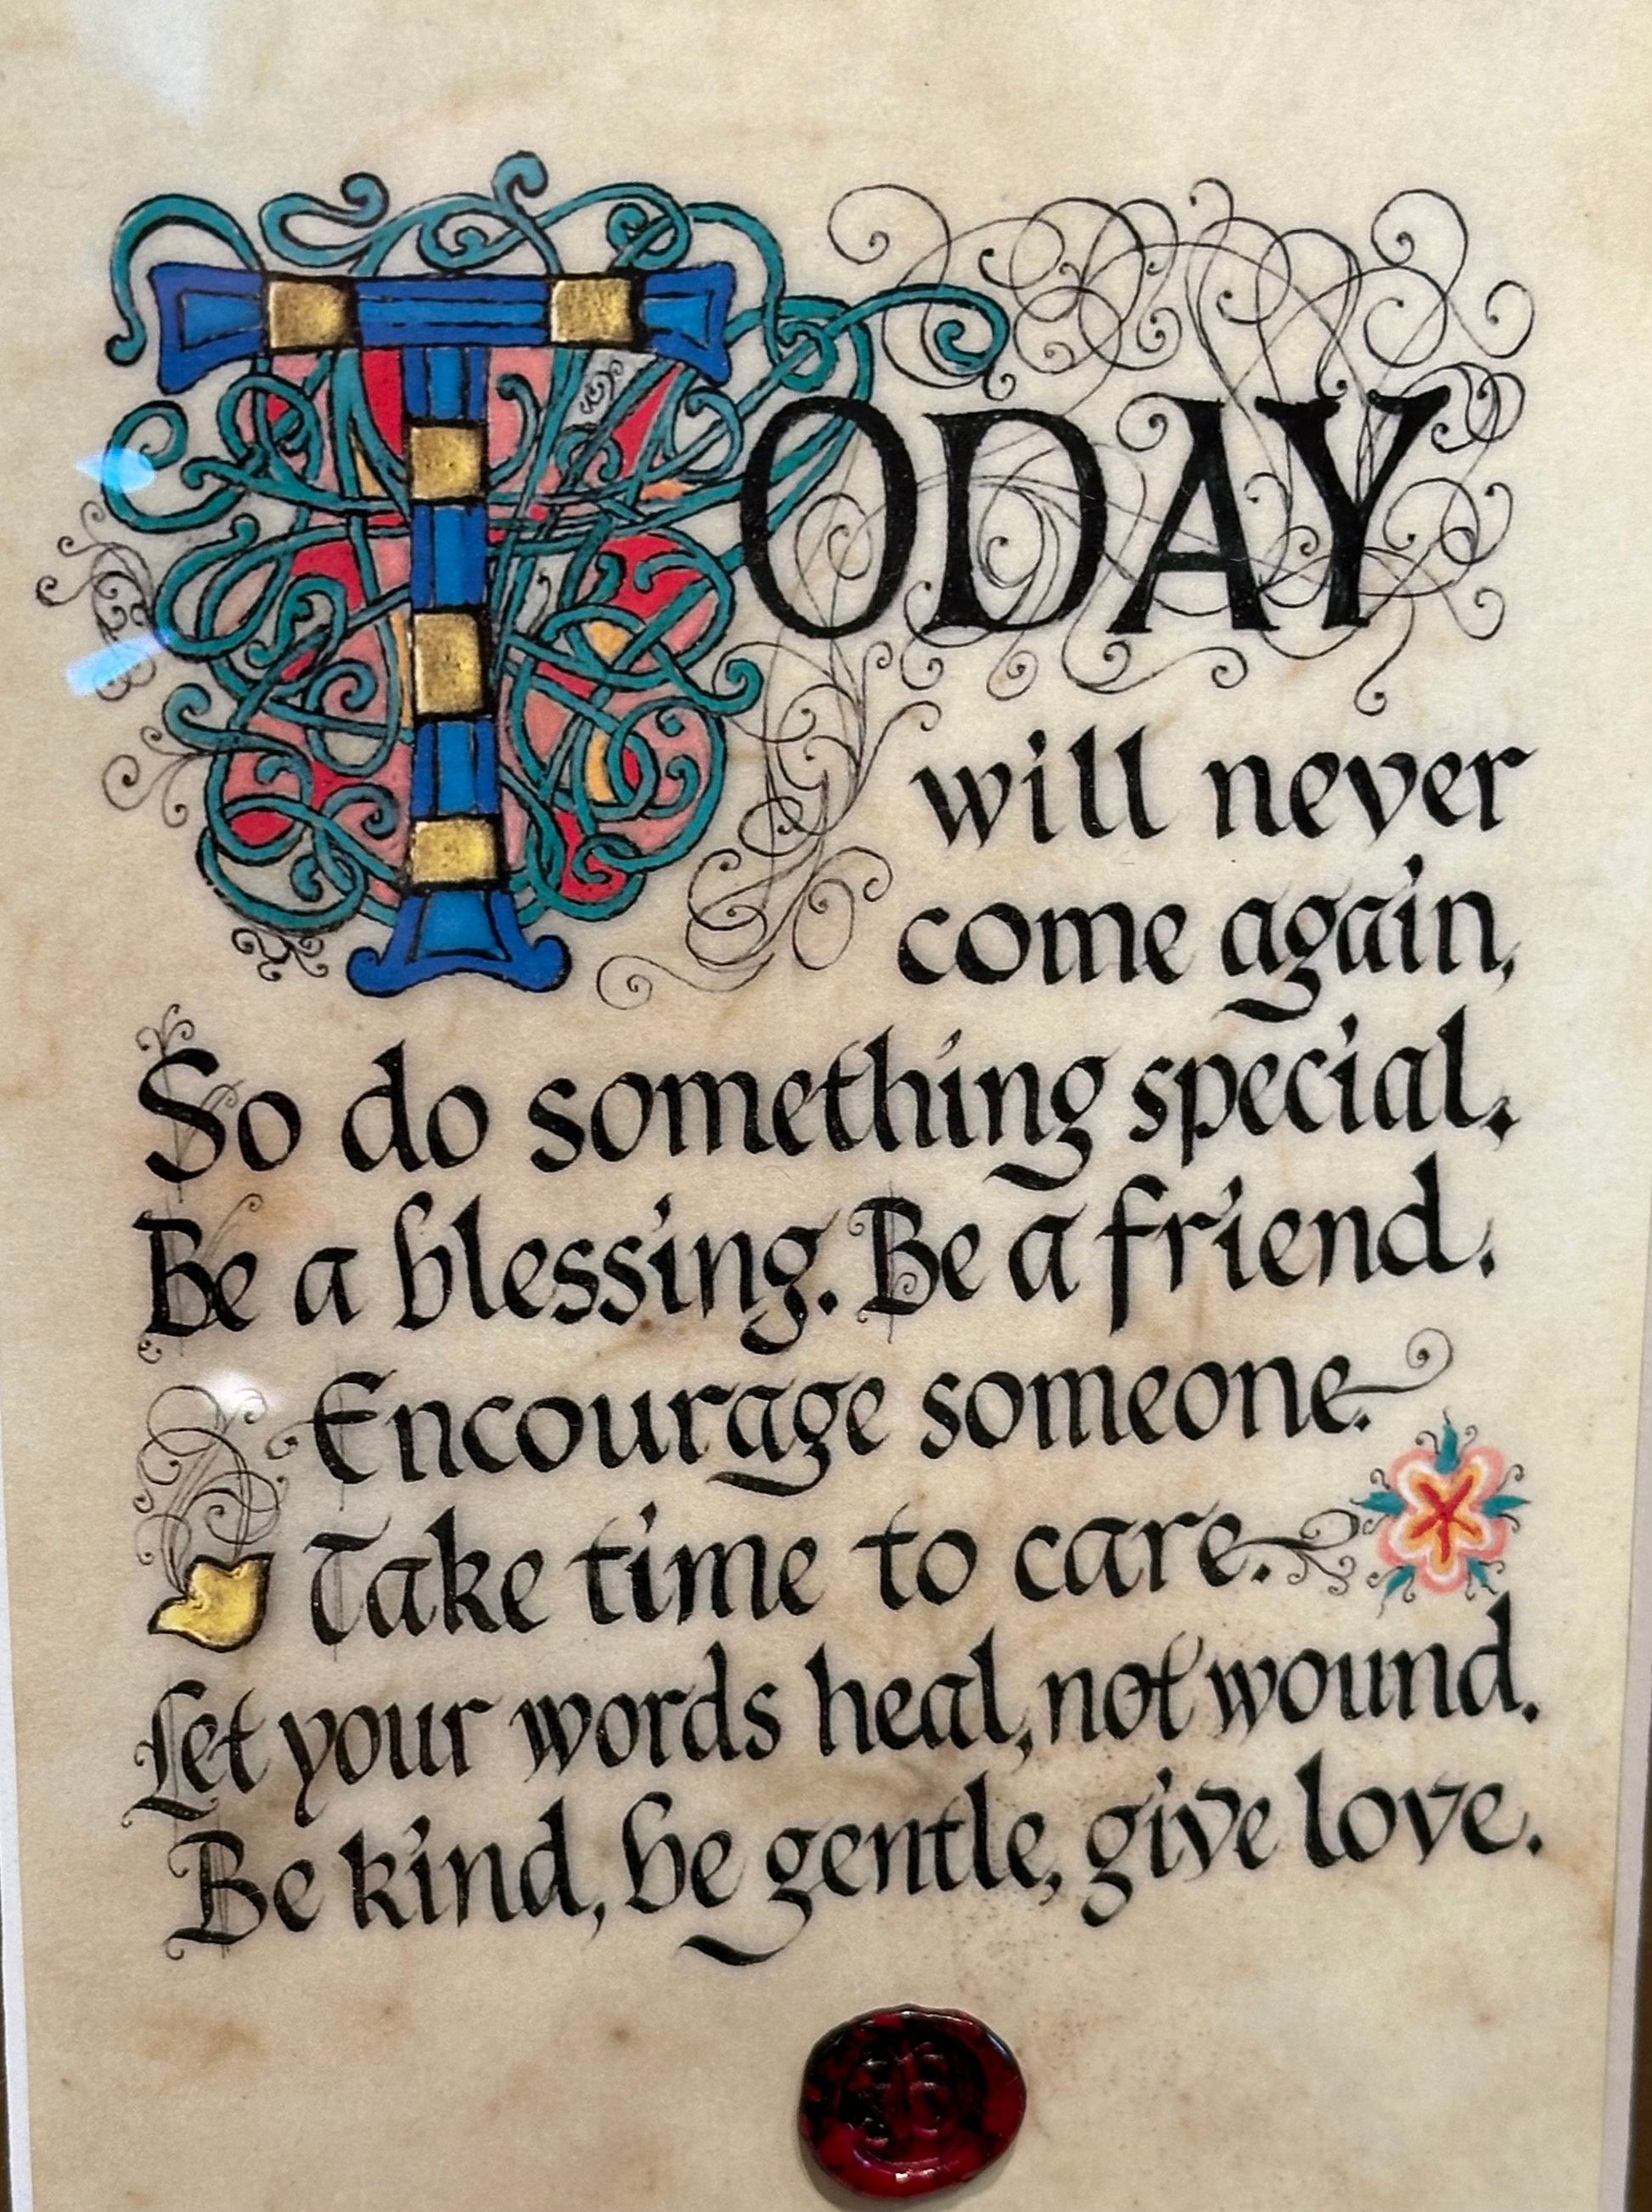 TODAY
will never
come again,
So do something special.
Be a blessing. Be a friend.
Encourage someone.
Take time to care.
Let your words heal, not wound.
Be kind, be gentle, give love.